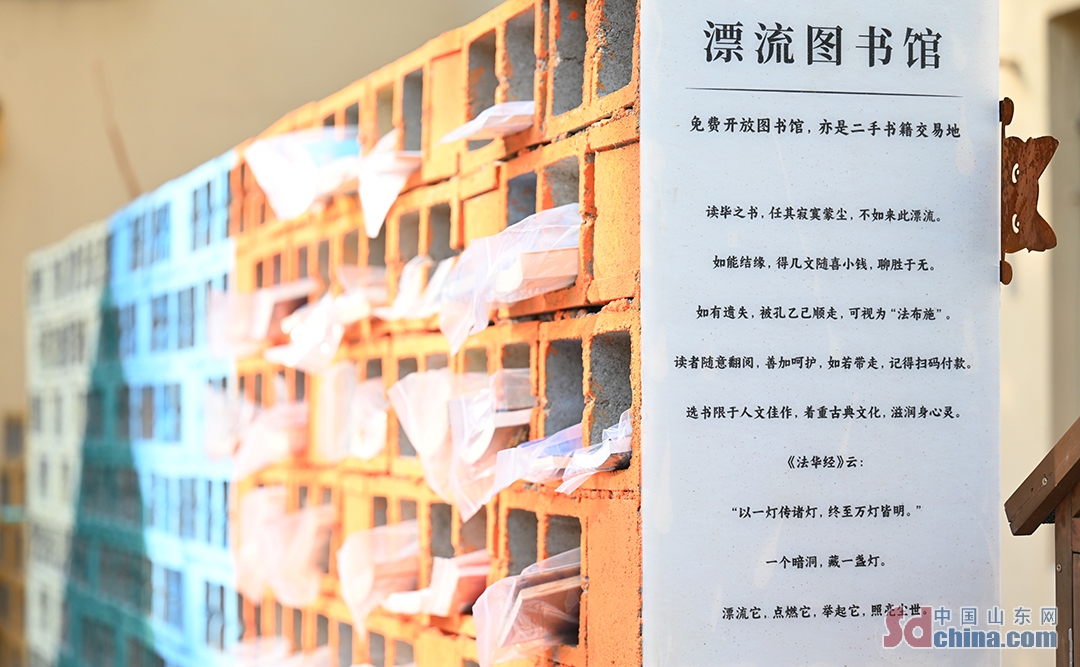 漂流图书馆
免费开放图书馆，亦是二手书籍交易地
读毕之书，任其寂寞蒙尘，不如来此漂流。
如能结缘，得几文随喜小钱，聊胜于无。
如有遗失，被孔乙己顺走，可视为“法布施”。
读者随意翻阅，善加呵护，如若带走，记得扫码付款。
选书限于人文佳作，着重古典文化，滋润身心灵。
《法华经》云：
“以一灯传诸灯，终至万灯皆明。”
一个暗洞，藏一盏灯。
漂流它，点燃它，举起它，照亮尘世。
中国山东网
sdchina.com